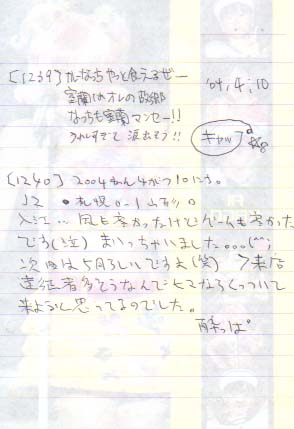 [1239] かーなっちやっと食えるぜー '04.4.10
室蘭はオレの故郷
なっちも室蘭マンセー!!
うれしすぎて涙出そう!! キャッ
[1240] 2004ねん4がつ10にち。
J2 ・札幌0-1山形
入江… 風も寒かったけどゲームも寒かった
です(泣) まいっちゃいました。。。(^^;
次回は5月らしいですね(笑) 来店
遠征者多そうなんでヒマならくっついて
来ようかと思ってるのでした。
酔っぱ